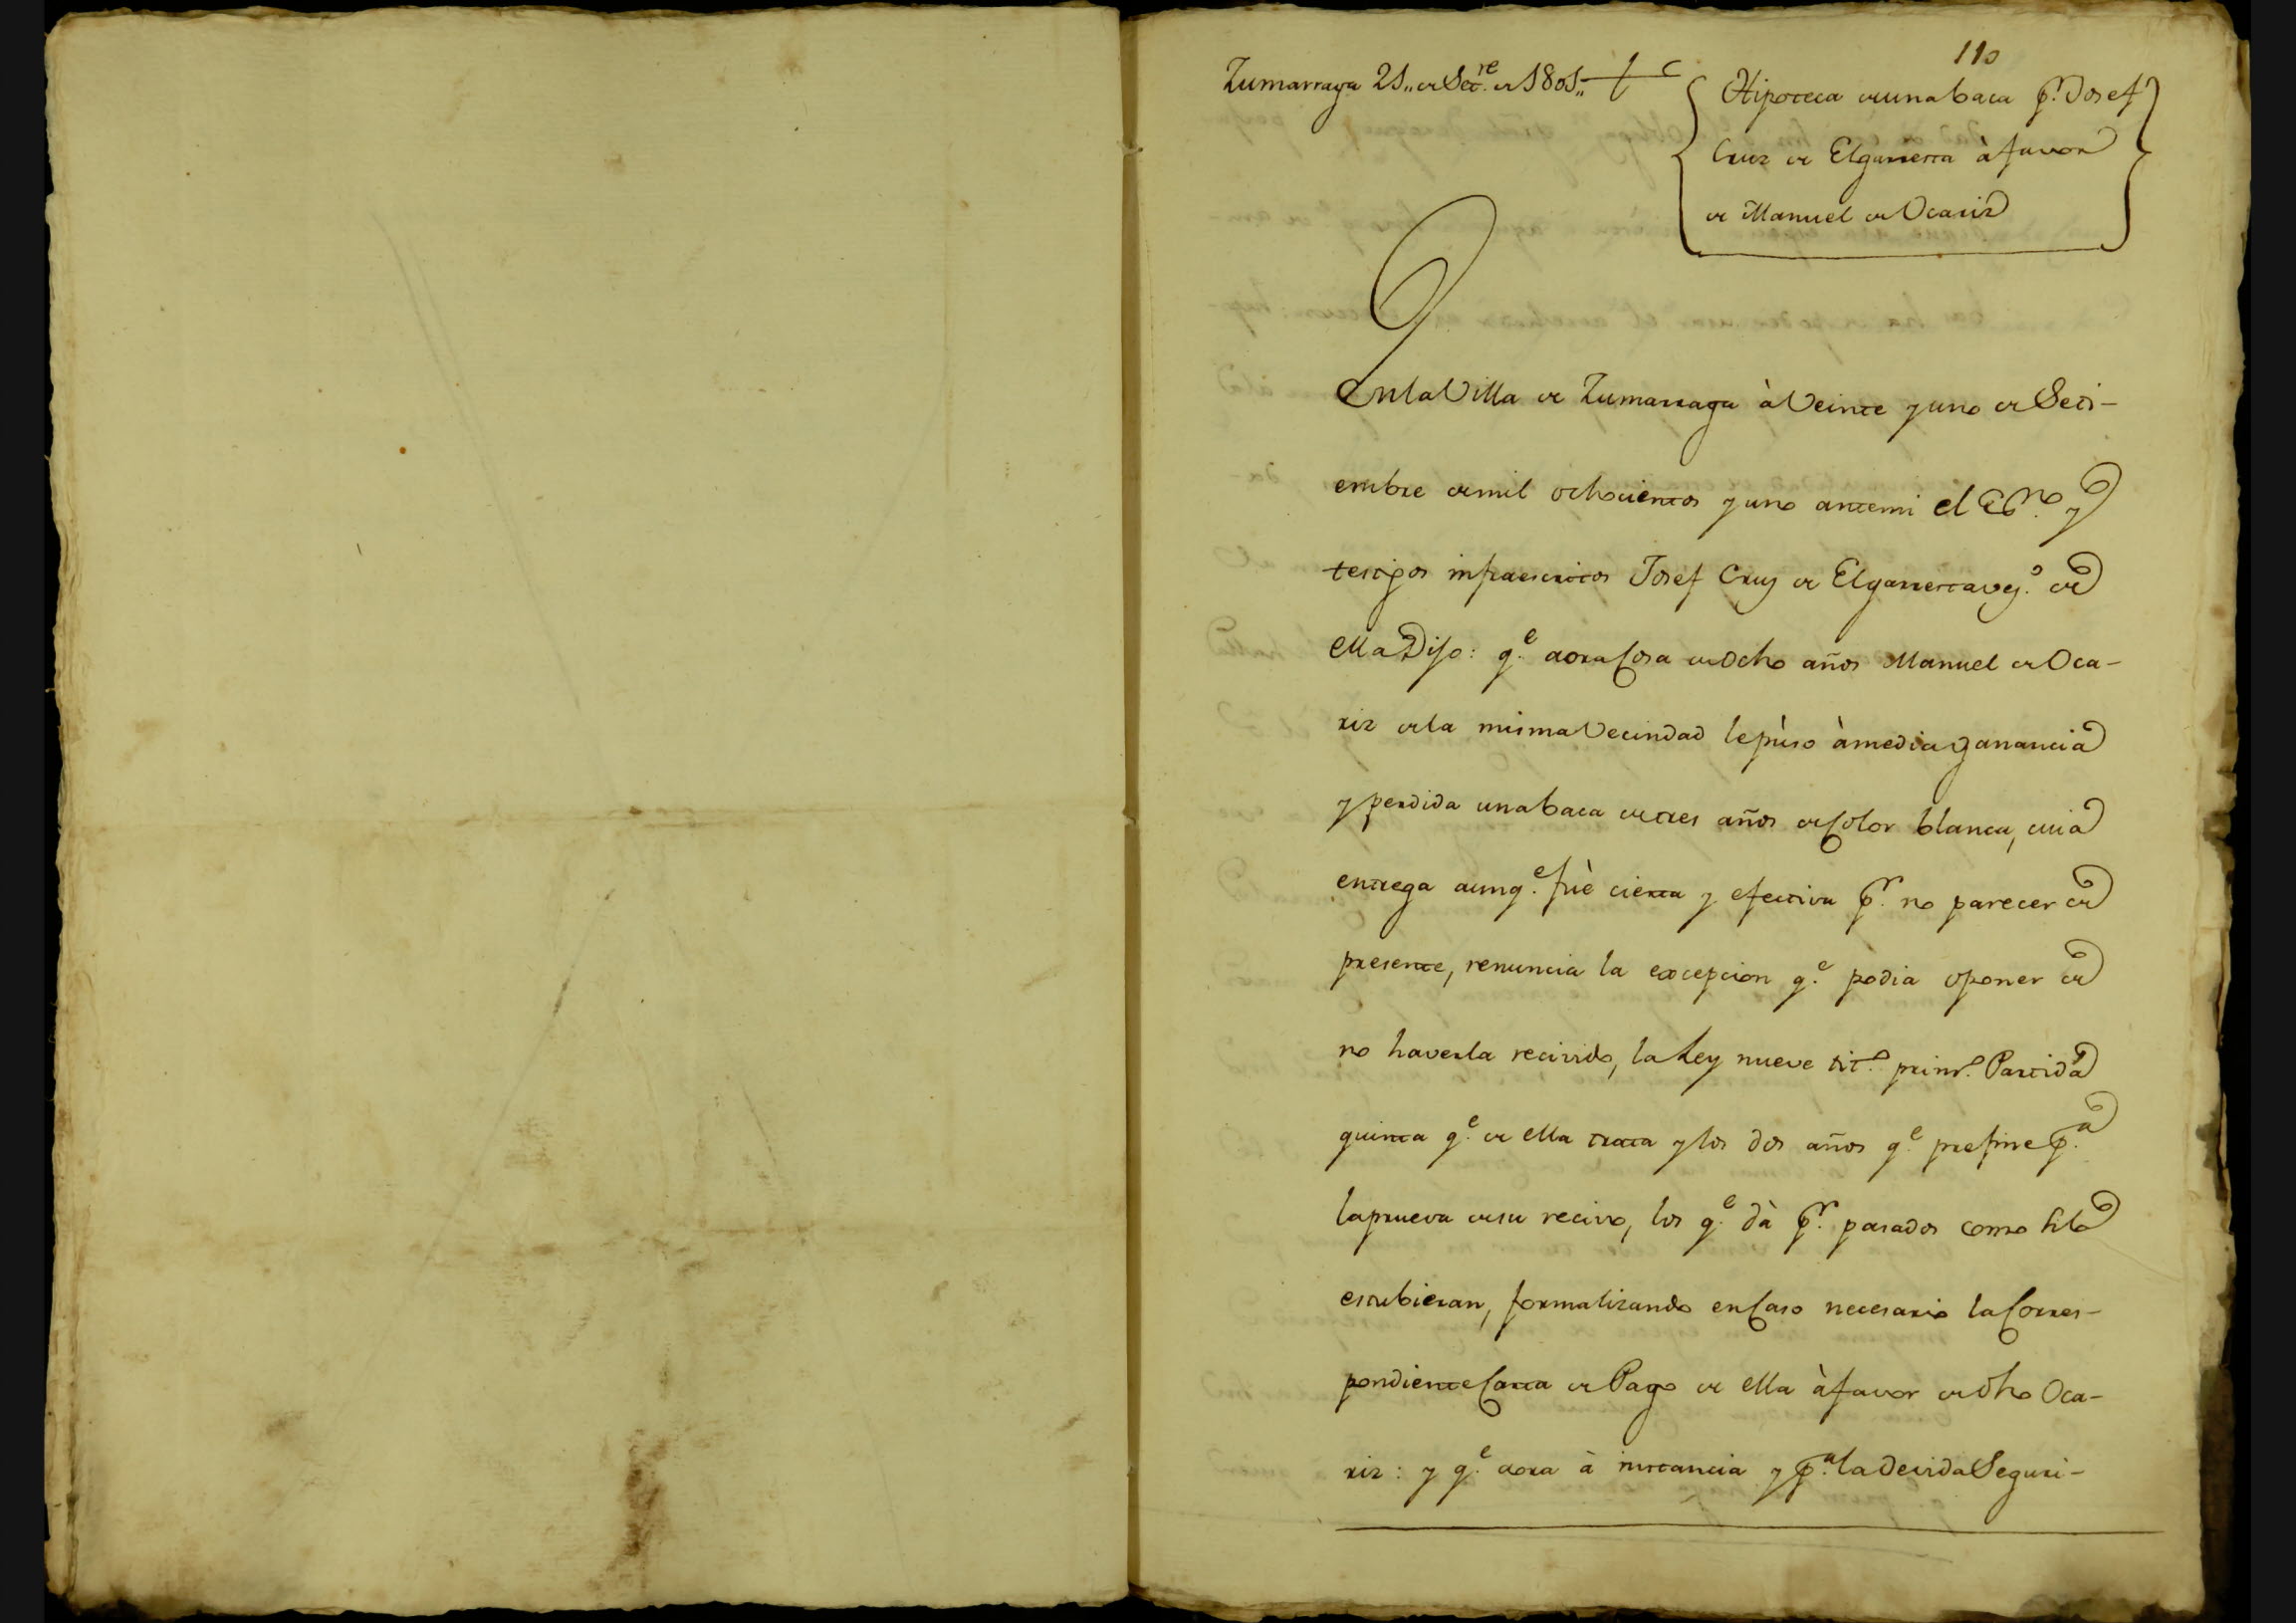 110
Zumarraga 21,, de Set.re de 1801,,
Hipoteca de una baca p.r Josef
Cruz de Elgarresta à favor
de Manuel de Ocariz
En la Villa de Zumarraga à Veinte y uno de Seti-
embre de mil ochocientos y uno ante mi el Es.no y
testigos infraescritos Josef Cruz de Elgarresta vez.o de
ella Dijo: q.e aora Cosa de Ocho años Manuel de Oca-
riz de la misma Vecindad le pùso à media ganancia
y perdida una baca de tres años de Color blanca, cuia
entrega aunq.e fuè cierta y efectiva p.r no parecer de
presente, renuncia la excepcion q.e podia oponer de
no haverla recivido, la Ley nueve tit.o prim.o Partida
quinta q.e de ella trata y los dos años q.e prefine p.a
la prueva de su recivo, los q.e dà p.r pasados como si lo
estubieran, formalizando en Caso necesario la Corres-
pondiente Carta de Pago de ella à favor de dho Oca-
riz: y q.e aora à instancia y p.a la devida Seguri-